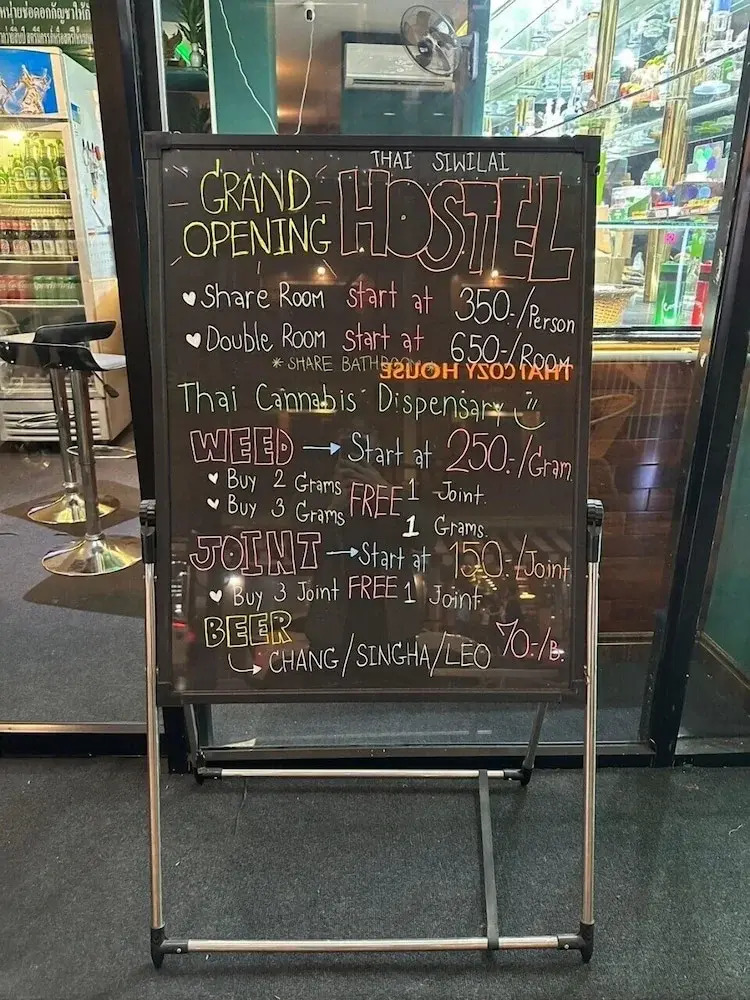 THAI SIWILAI
GRAND OPENING HOSTEL
Share Room start at 350.-/Person
Double Room start at 650.-/Room
* SHARE BATHROOM *
THAI COZY HOUSE
Thai Cannabis Dispensary
WEED → Start at 250.-/Gram
Buy 2 Grams FREE 1 Joint.
Buy 3 Grams 1 Grams.
JOINT → Start at 150.-/Joint
Buy 3 Joint FREE 1 Joint.
BEER
CHANG/SINGHA/LEO 70.-/B.